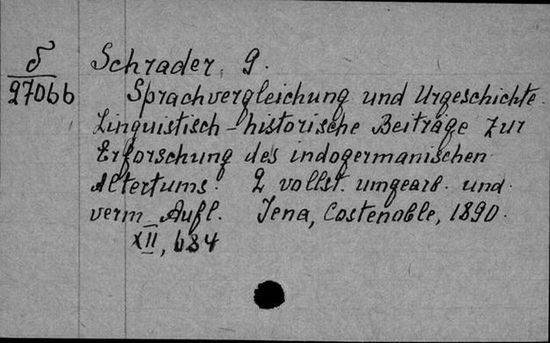 δ
27066
Schrader, O.
Sprachvergleichung und Urgeschichte.
Linguistisch-historische Beiträge zur
Erforschung des indogermanischen
Altertums. 2 vollst. umgearb. und
verm. Aufl. Jena, Costenoble, 1890.
XII, 684